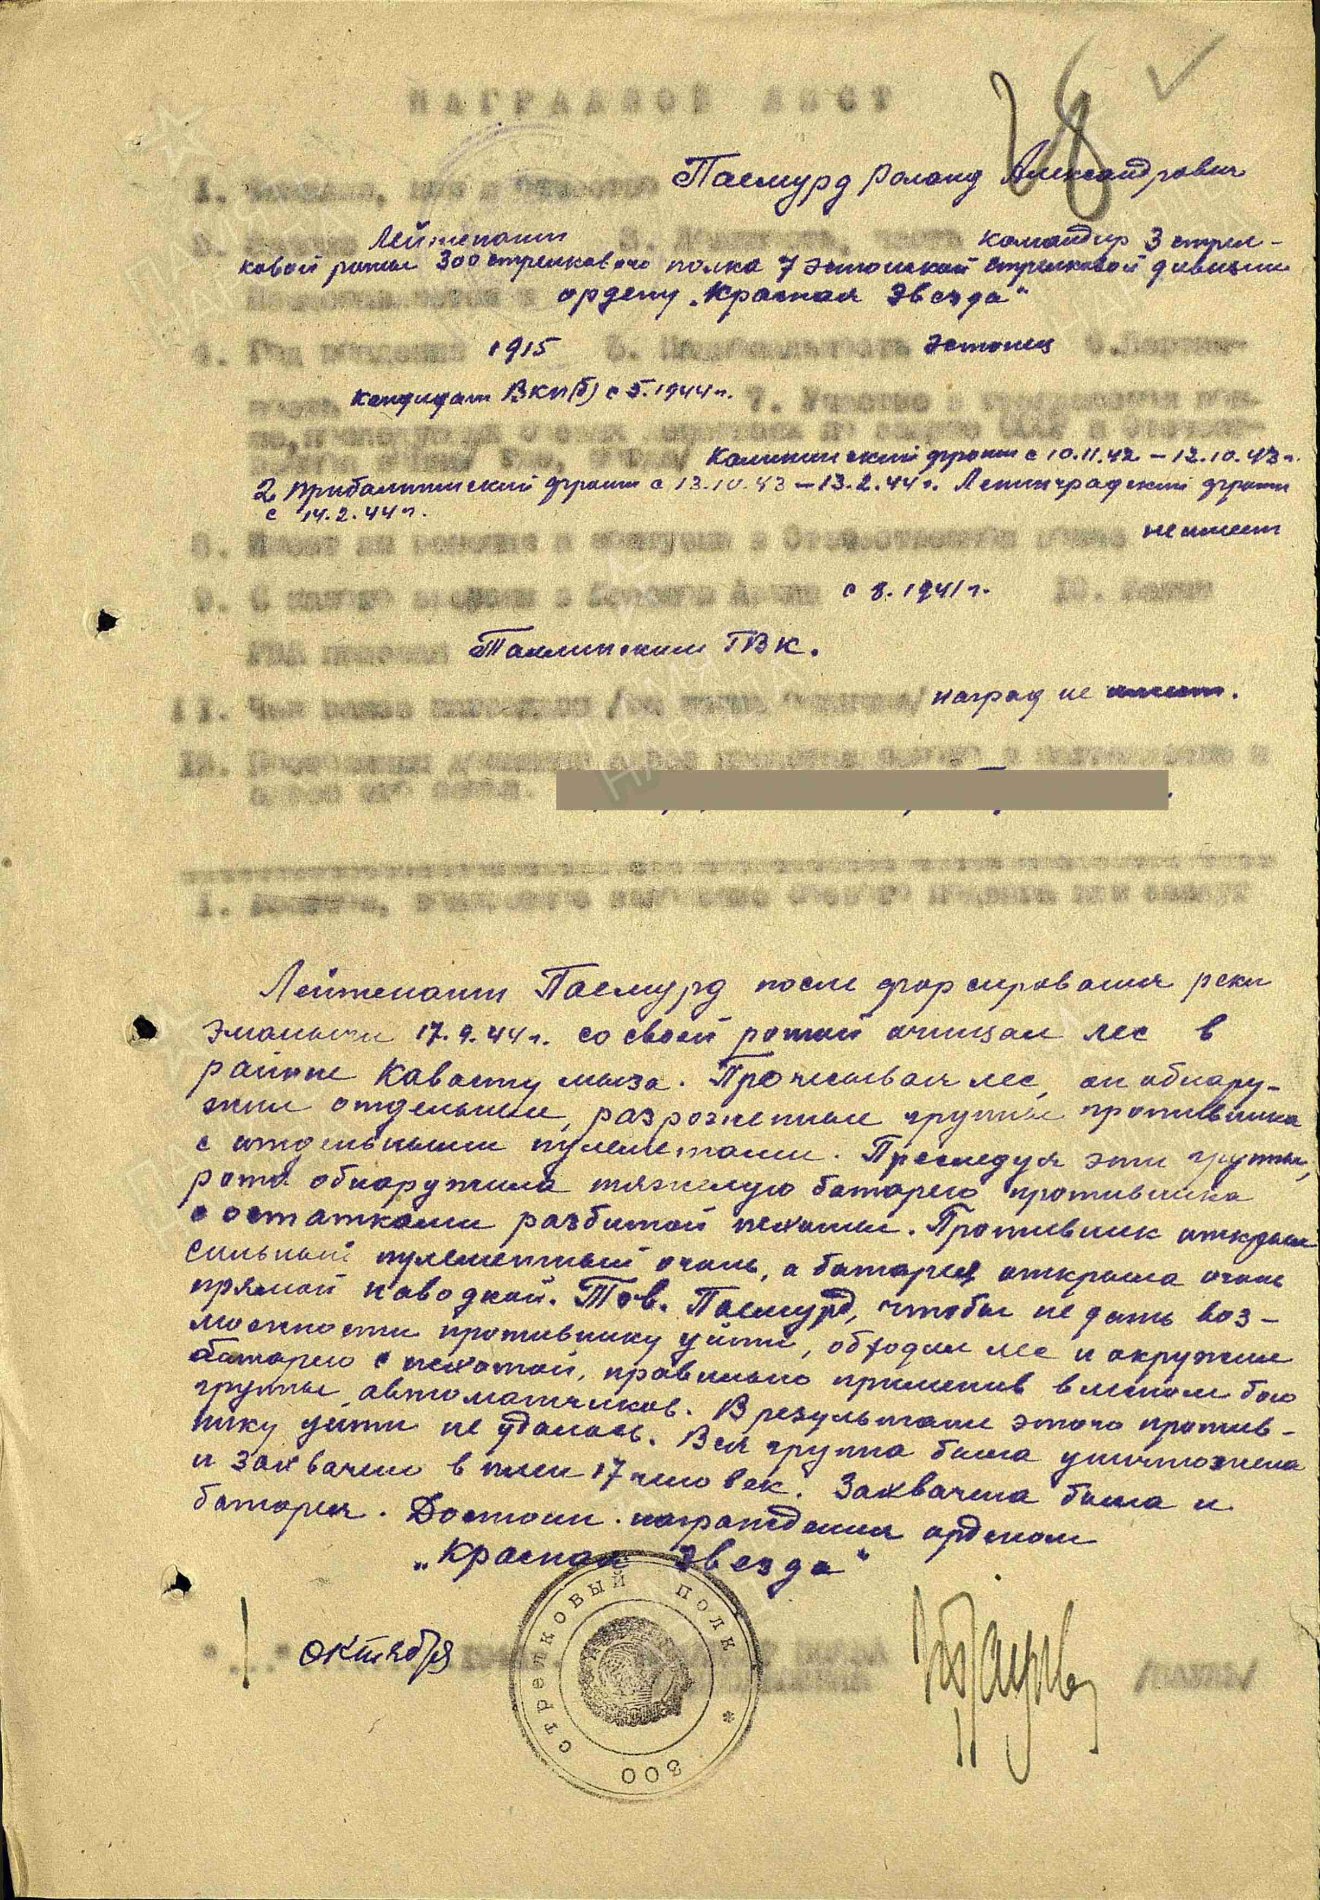 28
НАГРАДНОЙ ЛИСТ
1. Фамилия, имя и Отчество Паемурд Роланд Александрович
2. Звание Лейтенант 3. Должность, часть командир 3 стрел-
ковой роты 300 стрелкового полка 7 эстонской стрелковой дивизии
Представляется к ордену „Красная Звезда“
4. Год рождения 1915 5. Национальность эстонец 6. Партий-
ность кандидат ВКП(б) с 5.1944 г. 7. Участие в гражданской вой-
не, последующих боевых действиях по защите СССР и Отечест-
венной войне /где, когда/ Калининский фронт с 10.11.42 – 12.10.43 г.
2 Прибалтийский фронт с 13.10.43 – 13.2.44 г. Ленинградский фронт
с 14.2.44 г.
8. Имеет ли ранения и контузии в Отечественной войне не имеет
9. С какого времени в Красной Армии с 8.1941 г. 10. Каким
РВК призван Таллинским ГВК.
11. Чем ранее награжден /за какие отличия/ наград не имеет.
12. Постоянный домашний адрес представляемого к награждению и
адрес его семьи.
1. Краткое, конкретное изложение боевого подвига или заслуг
Лейтенант Паемурд после форсирования реки
Эмайыги 17.9.44 г. со своей ротой очищал лес в
районе Кавасту мыза. Прочесывая лес, он обнару-
жил отдельные, разрозненные группы противника
с отдельными пулеметами. Преследуя эти группы,
рота обнаружила тяжелую батарею противника
с остатками разбитой пехоты. Противник открыл
сильный пулеметный огонь, а батарея открыла огонь
прямой наводкой. Тов. Паемурд, чтобы не дать воз-
можности противнику уйти, обходил лес и окружил
батарею с пехотой, правильно применив в лесном бою
группы автоматчиков. В результате этого против-
нику уйти не удалось. Вся группа была уничтожена
и захвачено в плен 17 человек. Захвачена была и
батарея. Достоин награждения орденом
„Красная Звезда“
"1" октября 194 г. КОМАНДИР ПОЛКА
/ПАУЛЬ/
300 СТРЕЛКОВЫЙ ПОЛК *